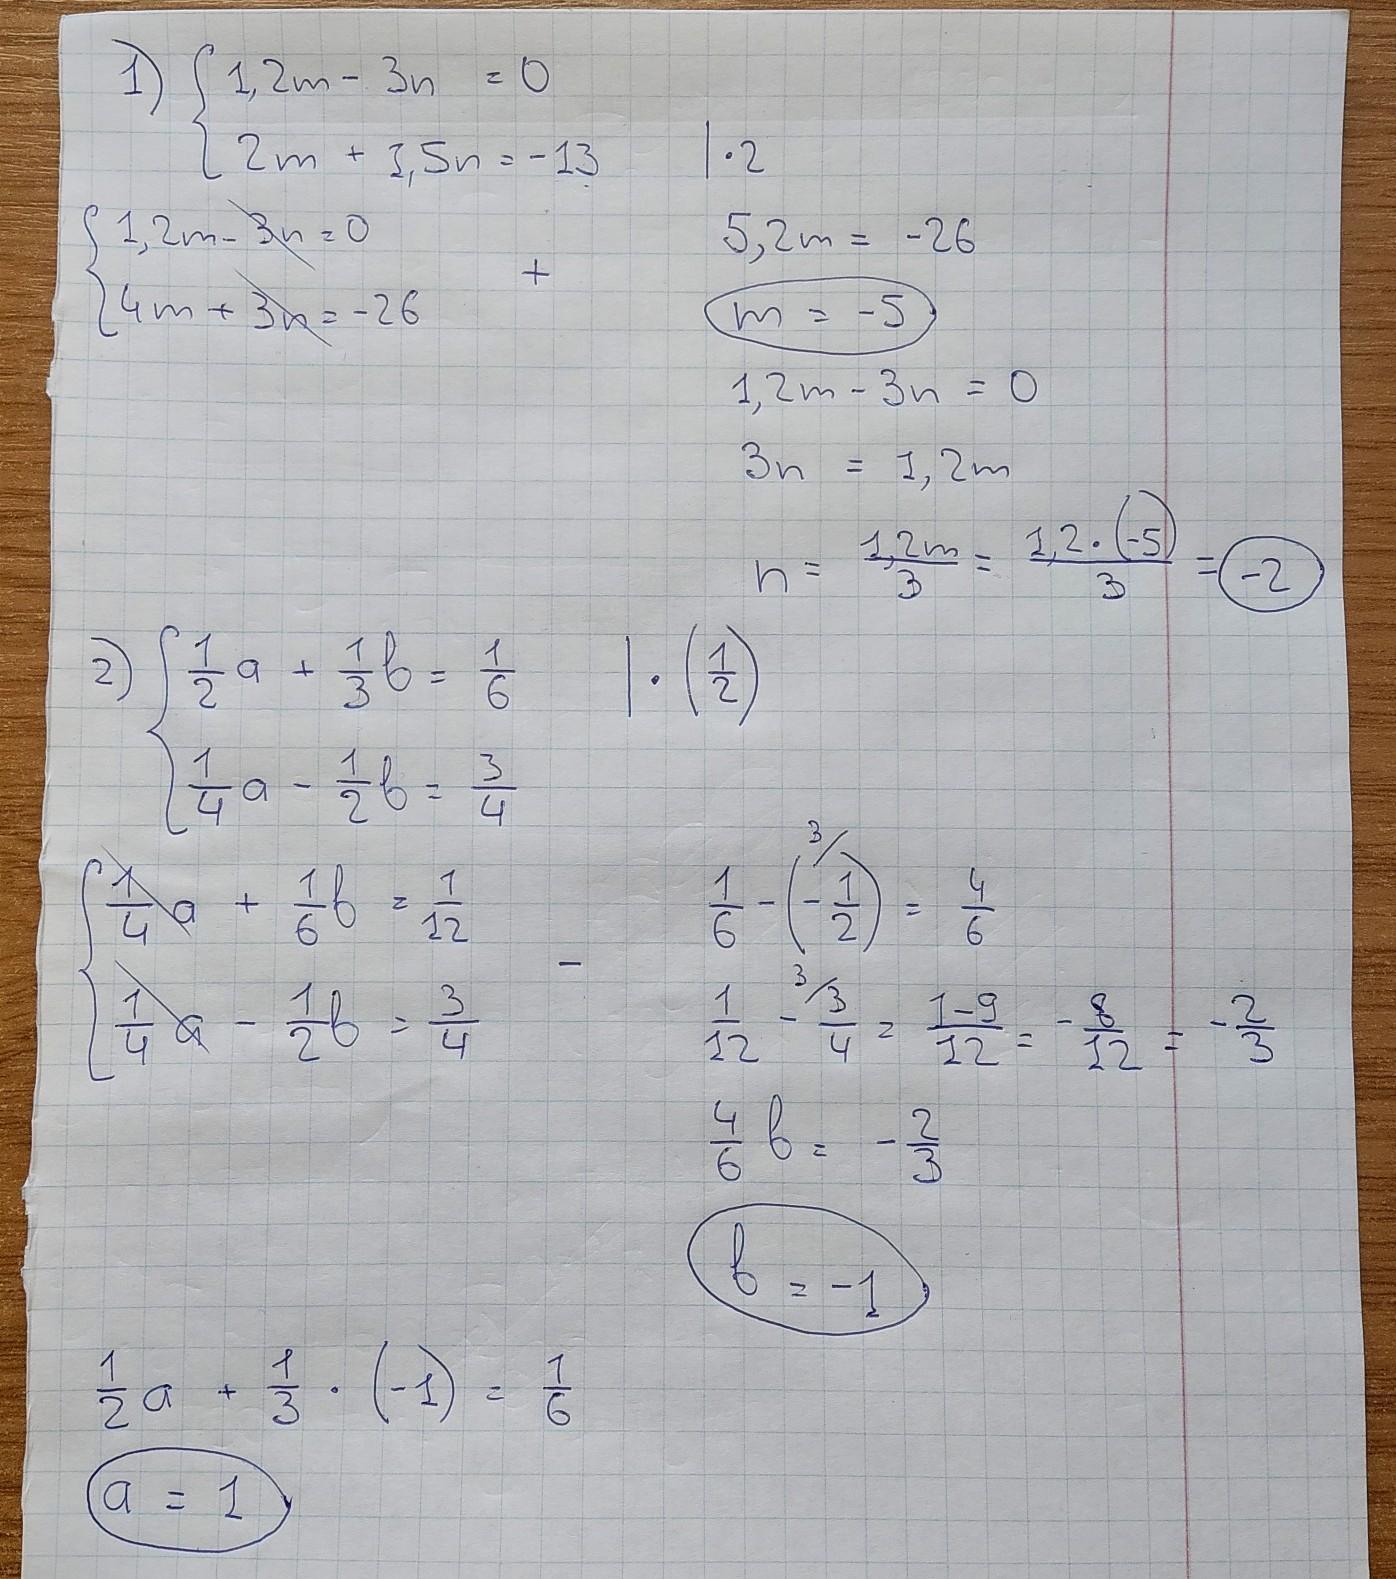 1) { 1,2m - 3n = 0
2m + 1,5n = -13 | · 2
{ 1,2m - 3n = 0
4m + 3n = -26
+
5,2m = -26
m = -5
1,2m - 3n = 0
3n = 1,2m
n = 1,2m/3 = 1,2·(-5)/3 = -2
2) { 1/2 a + 1/3 b = 1/6 | · (1/2)
1/4 a - 1/2 b = 3/4
{ 1/4 a + 1/6 b = 1/12
1/4 a - 1/2 b = 3/4
-
1/6 - (-1/2) 3/ = 4/6
1/12 - 3/ 3/4 = 1-9/12 = -8/12 = -2/3
4/6 b = -2/3
b = -1
1/2 a + 1/3 · (-1) = 1/6
a = 1